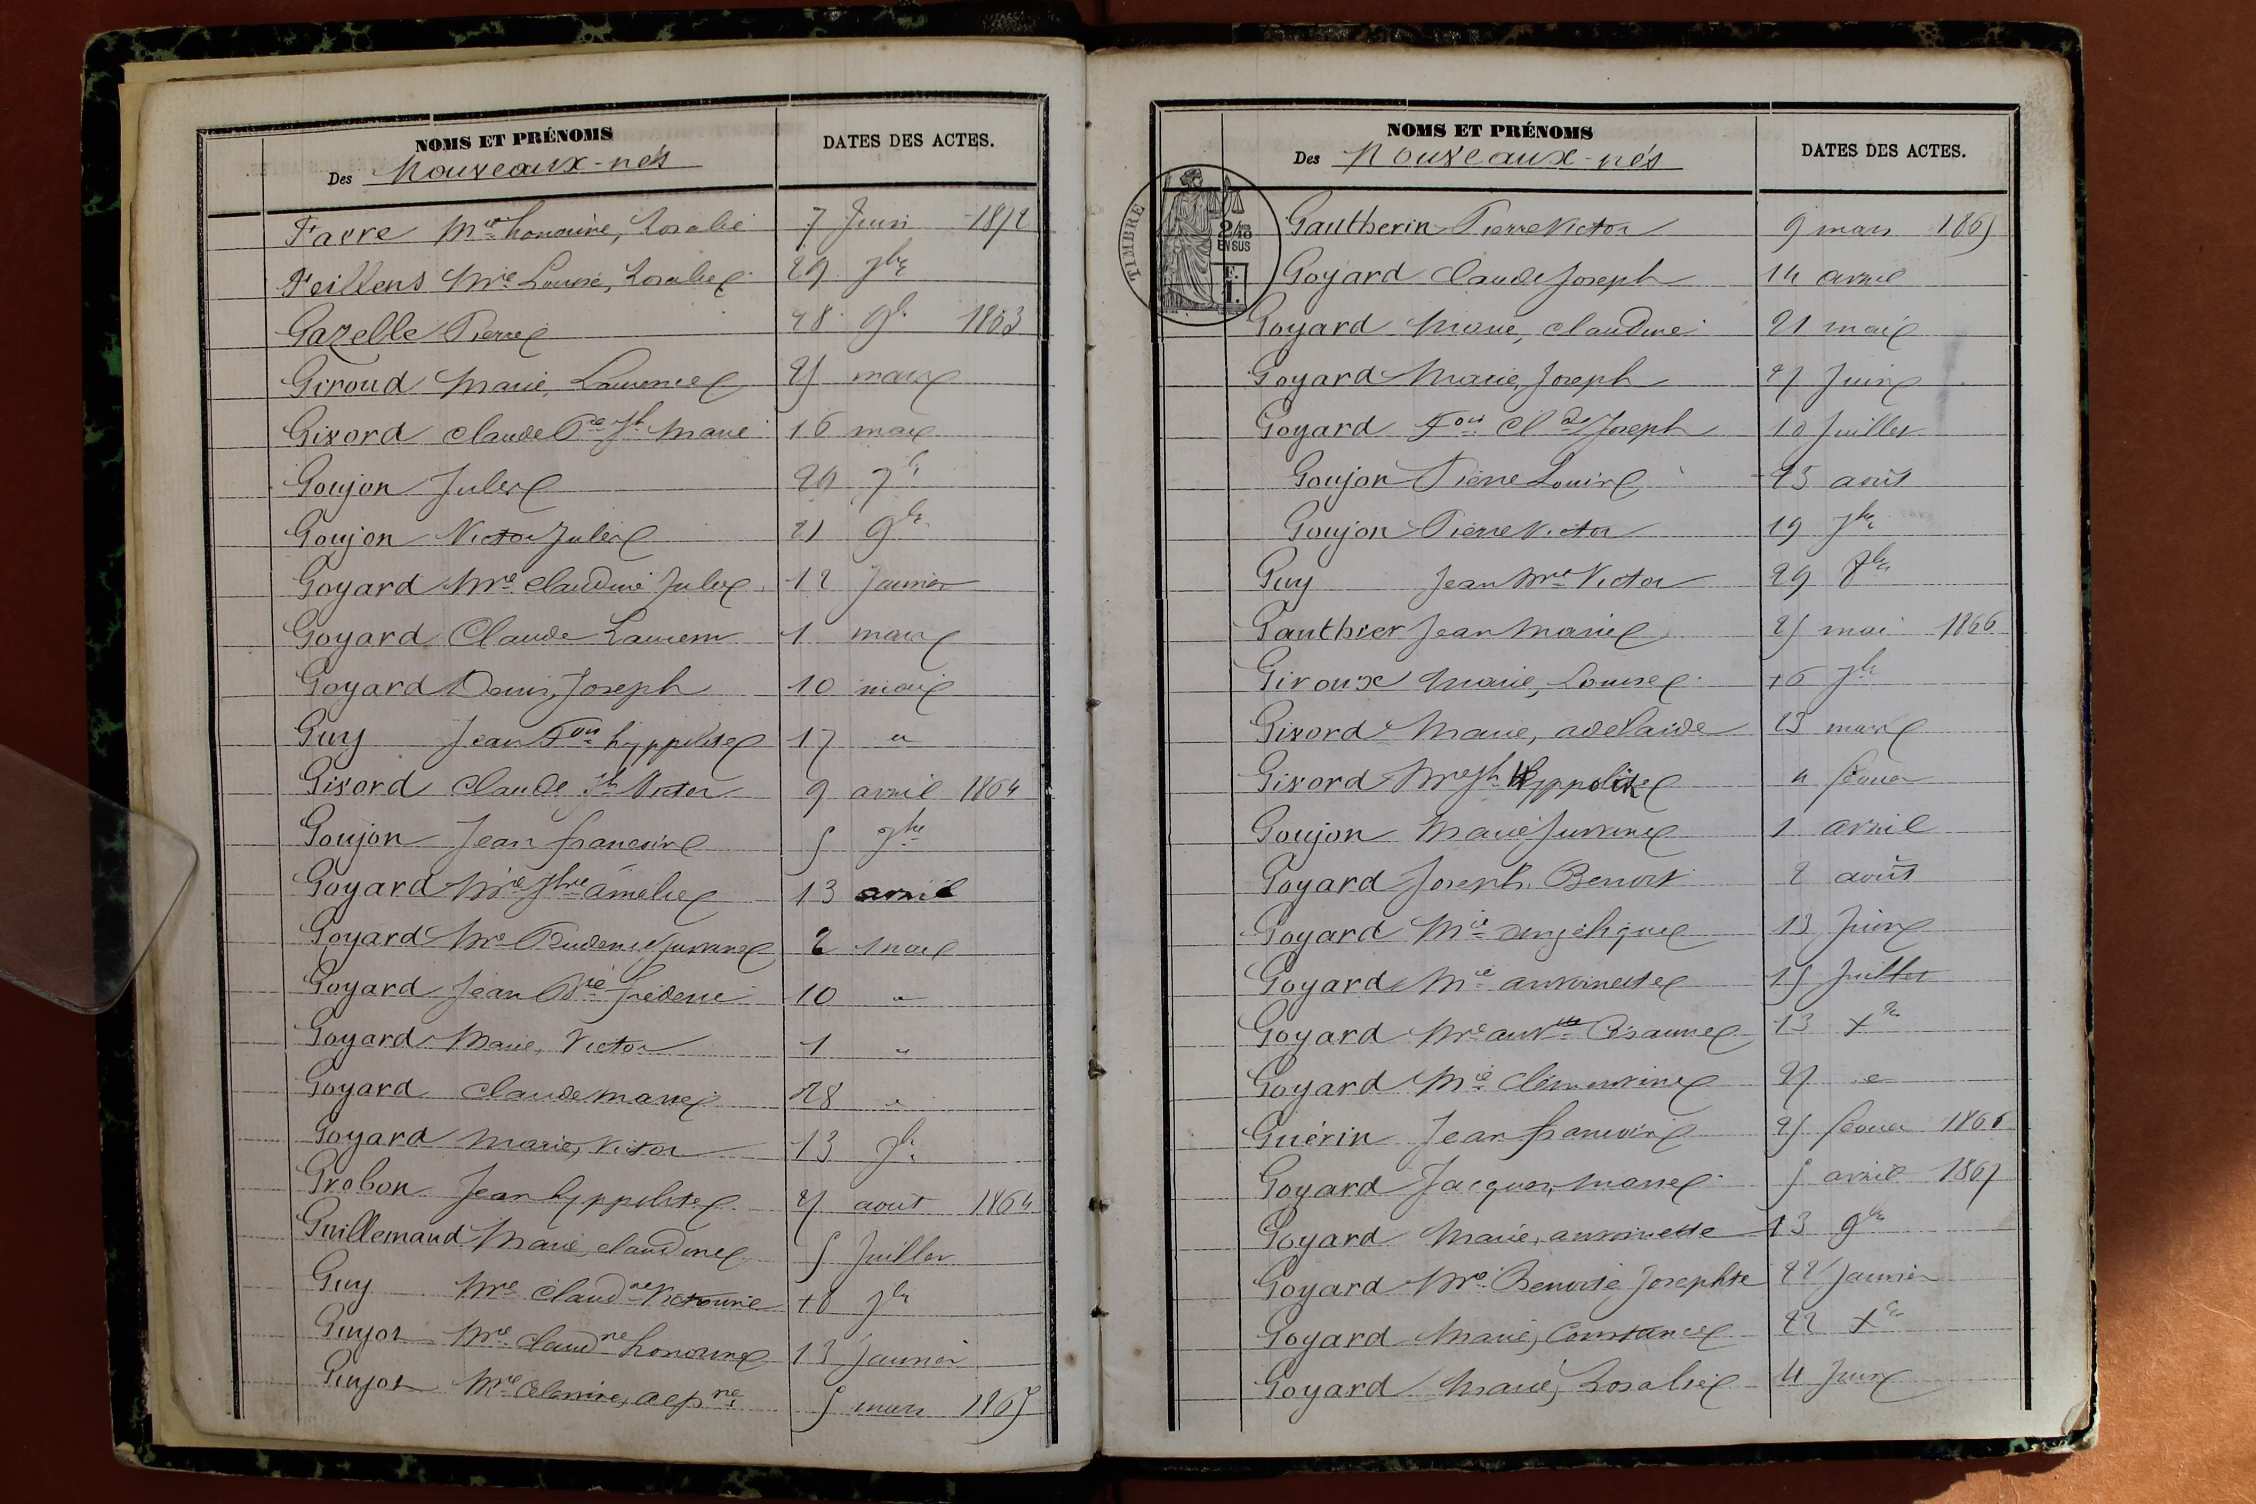 NOMS ET PRÉNOMS
Des Nouveaux-nés
DATES DES ACTES.
Favre Mie honorine, Rosalie 7 Juin 1872
Feillens Mie Louise, Rosalie 29 7bre
Gazelle Pierre 9bre 1863
Giroud Marie, Laurence 25 mars
Givord Claude Jh Marie 16 mai
Goujon Jules 20 7bre
Goujon Victor Jules 21 9bre
Goyard Mie Claudine Julie 12 Janvier
Goyard Claude Laurent 1 mars
Goyard Denis, Joseph 10 mai
Guy Jean Fois hyppolite 17 "
Givord Claude Jh Victor 9 avril 1864
Goujon Jean francois 5 7bre
Goyard Mie Jhne amelie 13 avril
Goyard Mie Prudence Jussine 2 mai
Goyard Jean Bte frederic 10 "
Goyard Marie, Victor 1 "
Goyard Claude marie 28 "
Goyard Marie, Victor 13 9bre
Grobon Jean hyppolite 25 aout 1864
Guillemaud Marie, claudine 5 Juillet
Guy Mie Claudne Victorine 7bre
Guyot Mie Claudne honorine 13 Janvier
Guyot Mie 5 mars 1865
NOMS ET PRÉNOMS
Des Nouveaux-nés
DATES DES ACTES.
TIMBRE
2/10 EN SUS
Gautherin Pierre Victor 9 mars 1865
Goyard Claude Joseph 14 avril
Goyard Marie, Claudine 21 mai
Goyard Marie, Joseph 25 Juin
Goyard Fois Clde Joseph 10 Juillet
Goujon Pierre Louis 25 août
Goujon Pierre Victor 19 7bre
Guy Jean Mie Victor 29 8bre
Gauthier Jean Marie 25 mai 1866
Giroux Marie, Louise 16 7bre
Givord Marie, adelaide 23 mars
Givord Mie Jh Hyppolite 4 février
Goujon Marie Jussine 1 avril
Goyard Joseph Benoit 2 août
Goyard Mie angelique 13 Juin
Goyard Mie antoinette 15 Juillet
Goyard Mie antte Césarine 13 Xbre
Goyard Mie Clémentine 25 "
Guérin Jean francois 25 février 1866
Goyard Jacques, marie 5 avril 1867
Goyard Marie, antoinette 13 9bre
Goyard Mie Benoite Josephte 22 Janvier
Goyard Marie, Constance 22 Xbre
Goyard Marie, Rosalie 4 Juin